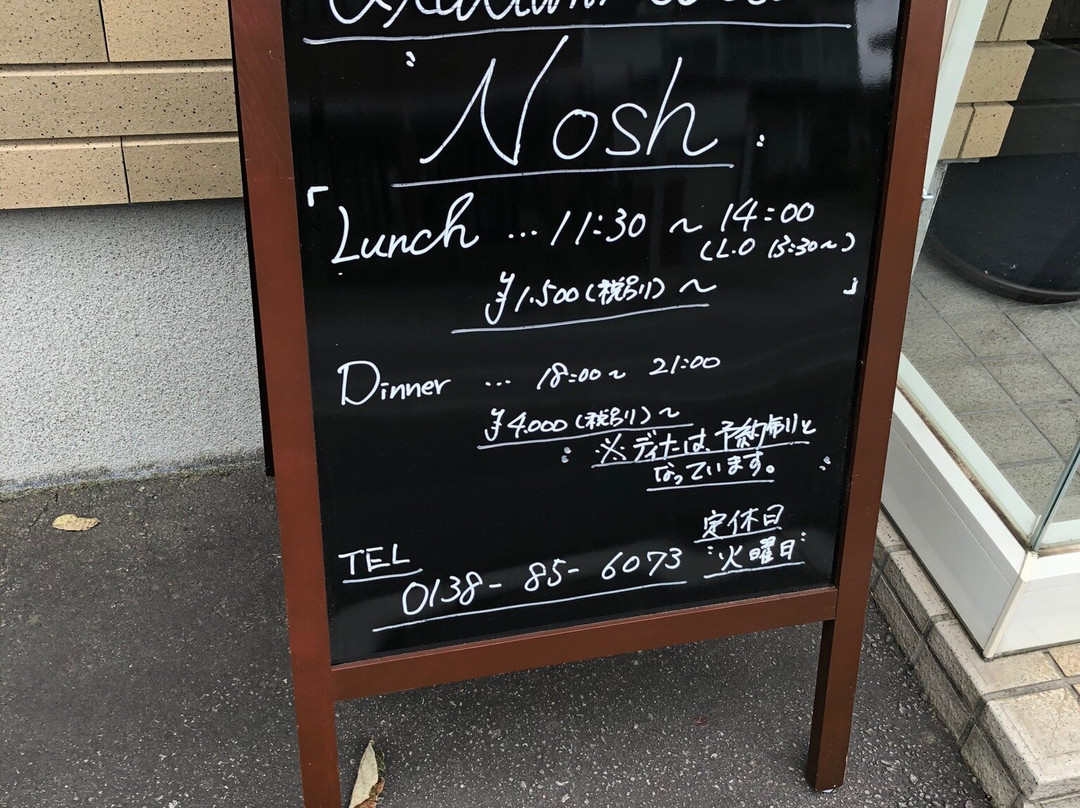 Nosh
「Lunch … 11:30 ～ 14:00
(L.O 13:30～)
¥1.500(税別)～」
Dinner … 18:00～ 21:00
¥4.000(税別)～
※ディナーは、予約制りと
なっています。
定休日
"火曜日"
TEL
0138-85-6073